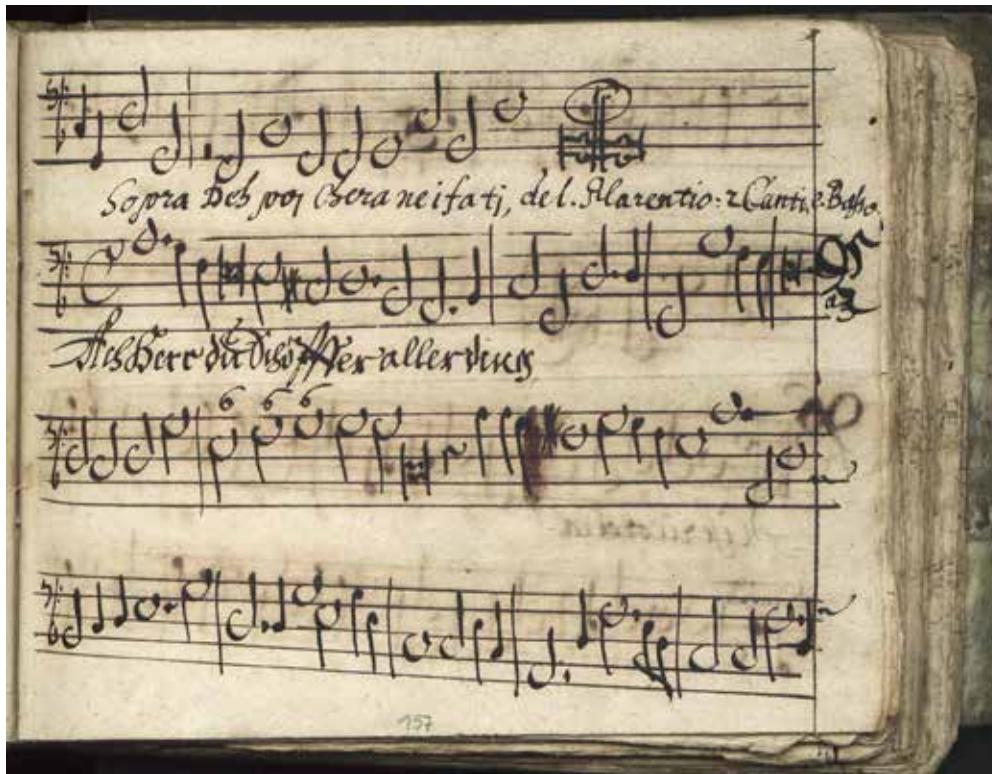 Sopra Deh poi Chera ne i fati, del. Marentio: 2 Canti. e. Basso.
a3
Ach Herr du Schöpffer aller ding
6 6 6
157